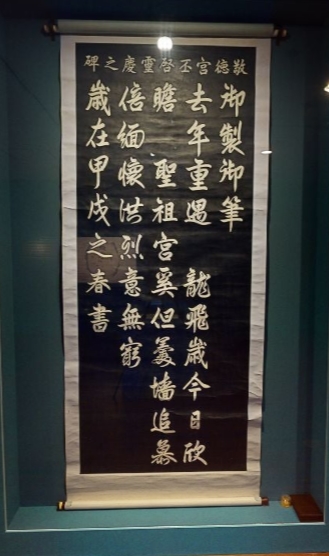 敬德宮丕啓靈慶之碑
御製御筆
去年重遇 龍飛歲今日欣
瞻 聖祖宮奚但羹墻追慕
倍緬懷洪烈意無窮
歲在甲戌之春書